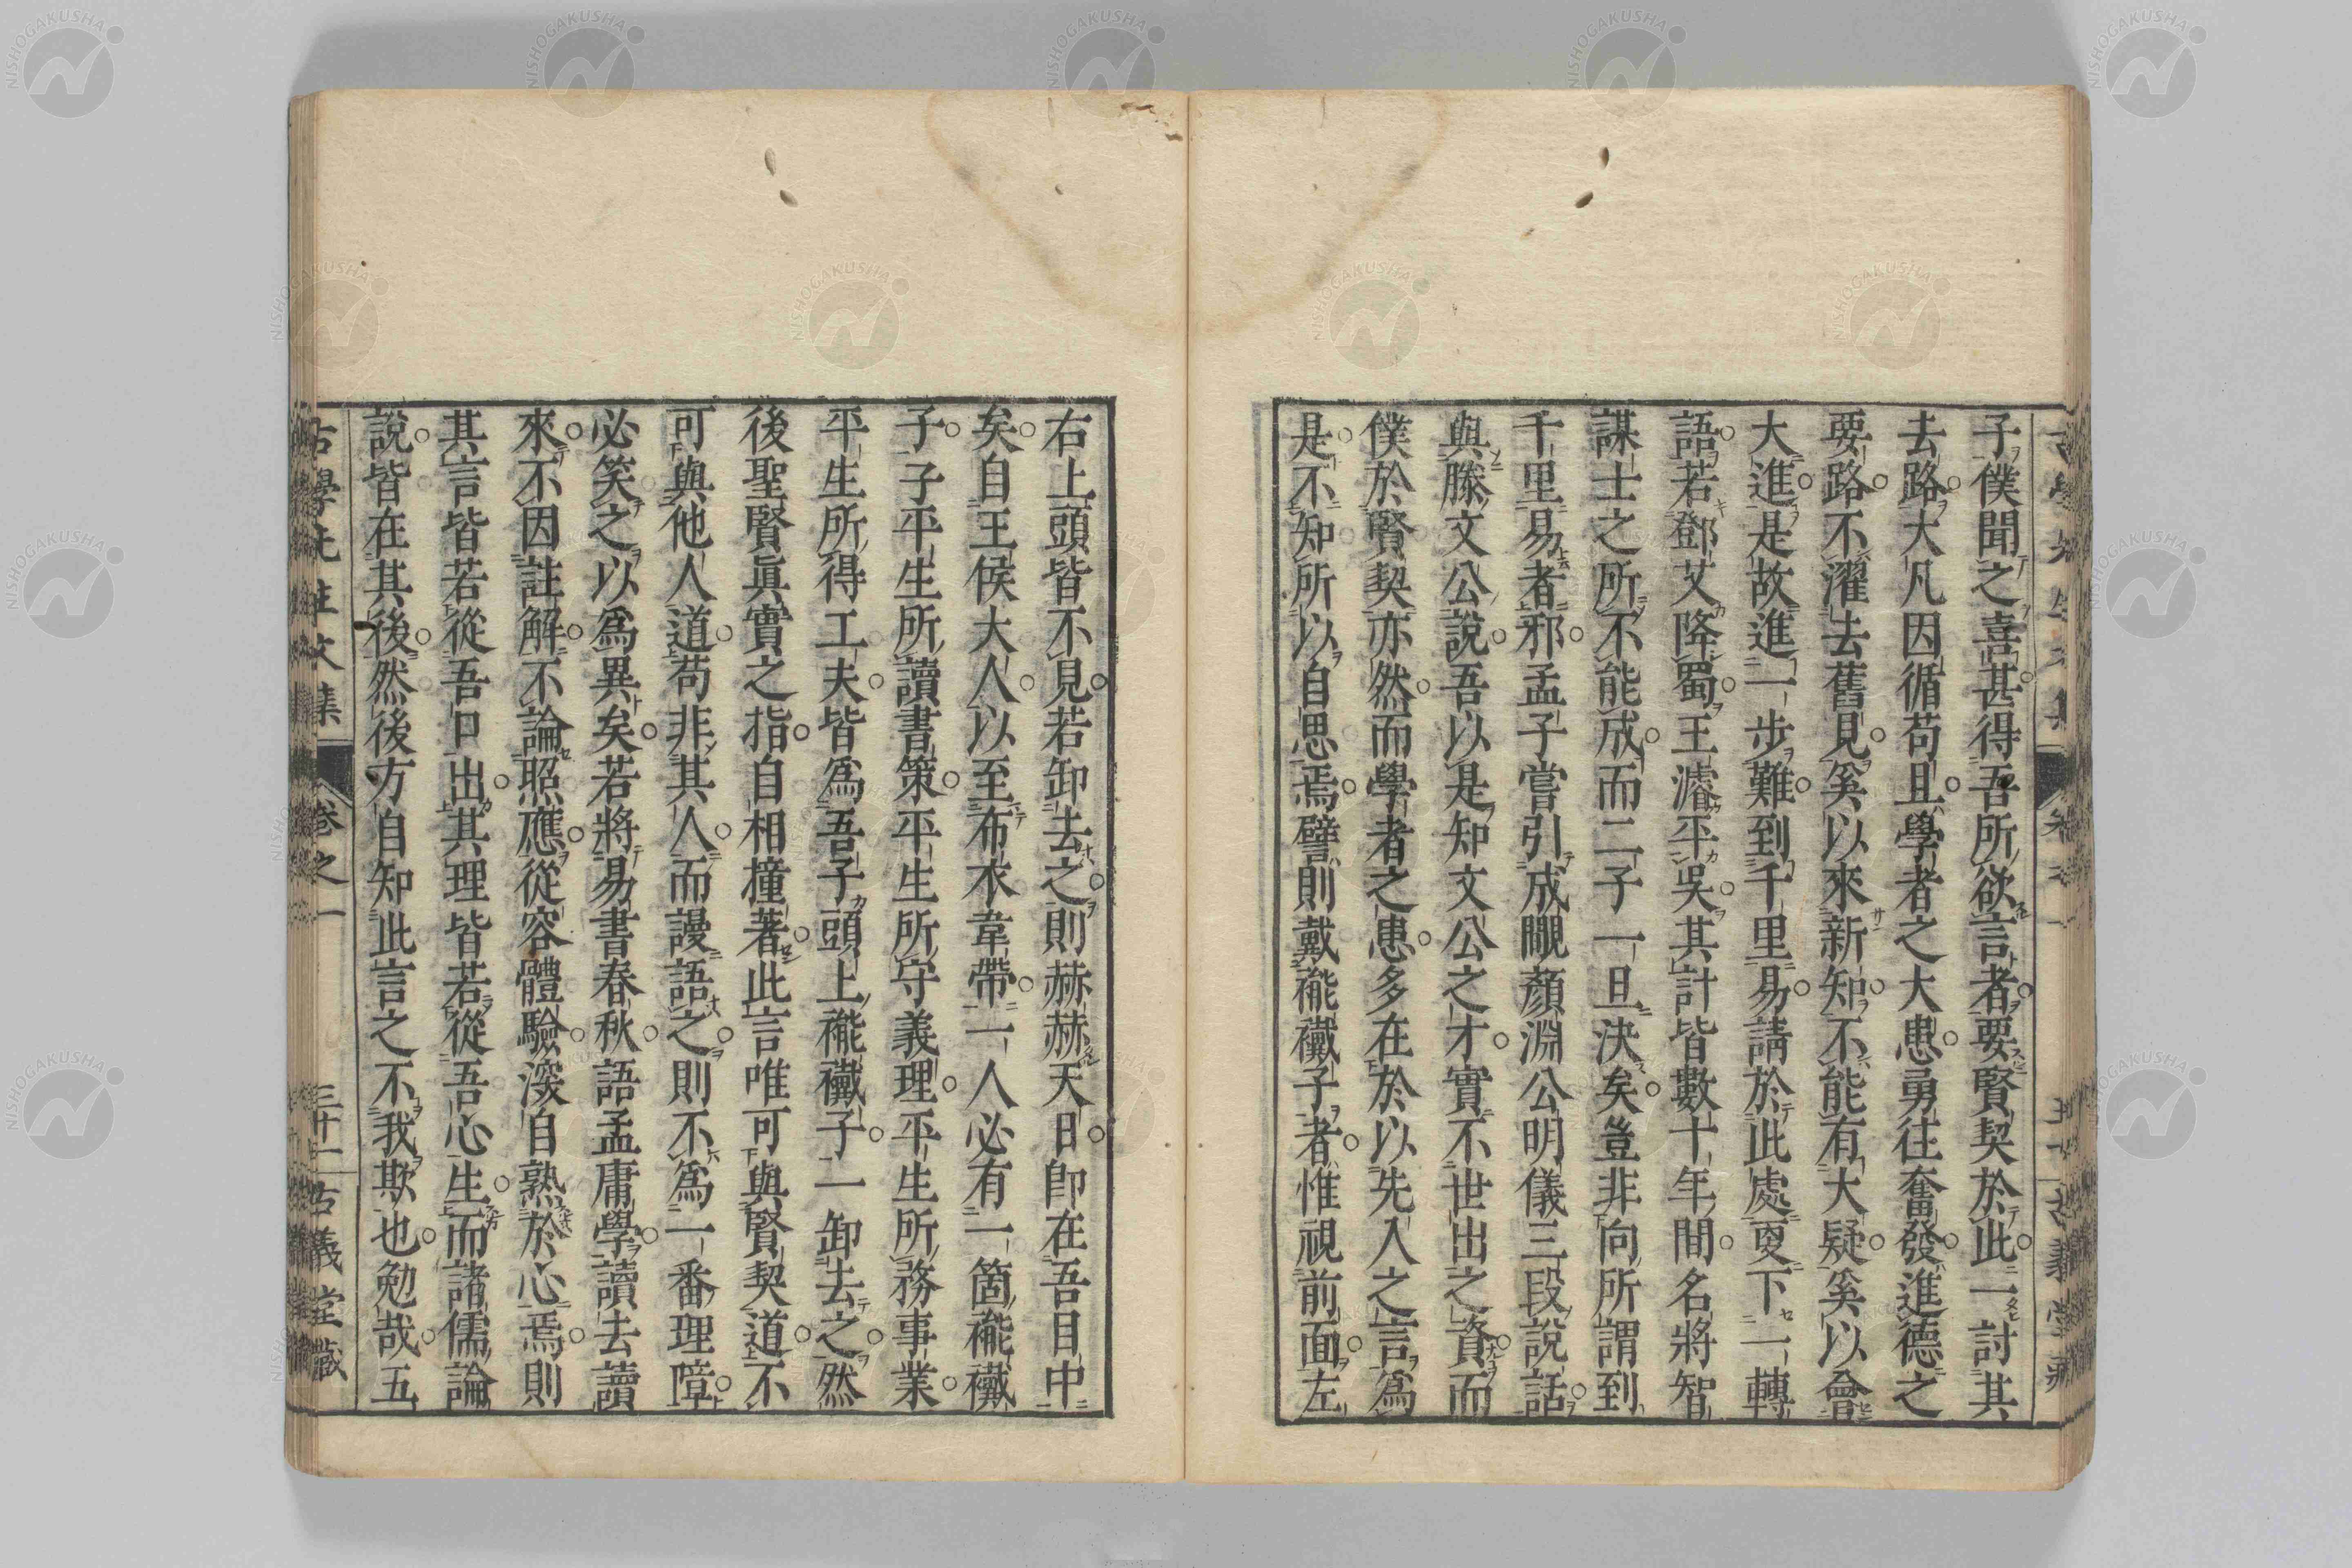 子僕聞之喜甚得吾所欲言者要賢契於此一討其
去路大凡因循苟且學者之大患勇往奮發進德之
要路不濯去舊見奚以來新知不能有大疑奚以會
大進是故進一步難到千里易請於此處更下一轉
語若鄧艾降蜀王濬平吳其計皆數十年間名將智
謀士之所不能成而二子一旦決矣豈非向所謂到
千里易者邪孟子嘗引成覵顏淵公明儀三段說話
與滕文公說吾以是知文公之才實不世出之資而
僕於賢契亦然而學者之患多在於以先入之言爲
是不知所以自思焉譬則戴襶子者惟視前面左
右上頭皆不見若卸去之則赫赫天日卽在吾目中
矣自王侯大人以至布衣韋帶一人必有一箇襶
子子平生所讀書策平生所守義理平生所務事業
平生所得工夫皆爲吾子頭上襶子一卸去之然
後聖賢眞實之指自相撞著此言唯可與賢契道不
可與他人道苟非其人而謾語之則不爲一番理障
必笑之以爲異矣若將易書春秋語孟庸學讀去讀
來不因註解不論照應從容體驗深自熟於心焉則
其言皆若從吾口出其理皆若從吾心生而諸儒論
說皆在其後然後方自知此言之不我欺也勉哉五
古學先生文集 卷之一 三十二 古義堂藏
NISHOGAKUSHA